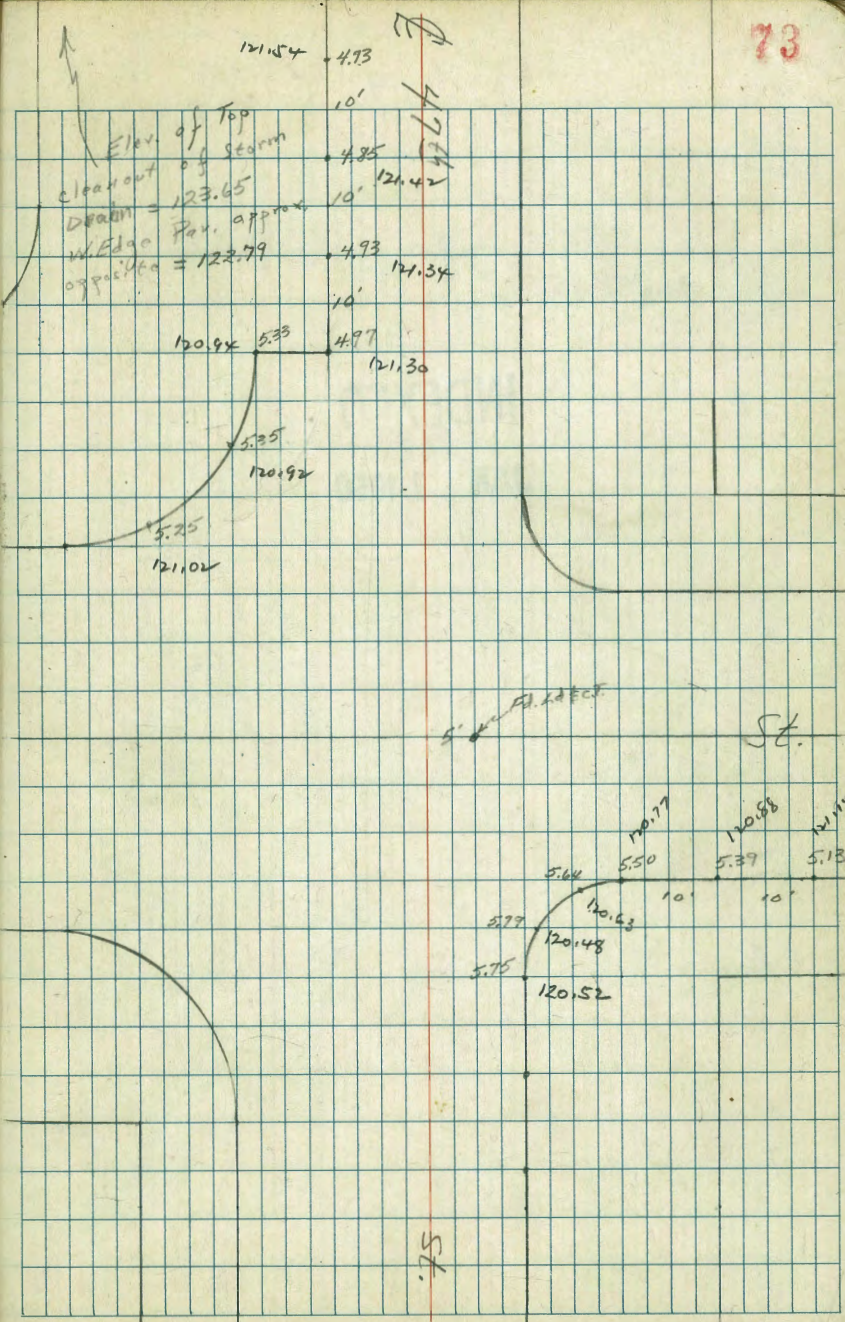 73
121.54
4.93
℄ 47th
10'
Elev. of Top
cleanout of Storm
Drain = 123.65
W. Edge Pav. approx.
opposite = 122.79
4.85
121.42
10'
4.93
121.34
10'
120.94
5.33
4.97
121.30
5.35
120.92
5.25
121.02
Fd. L&Tack
5'
St.
120.77
120.88
5.64
5.50
5.39
5.13
10'
10'
120.63
5.79
120.48
5.75
120.52
St.